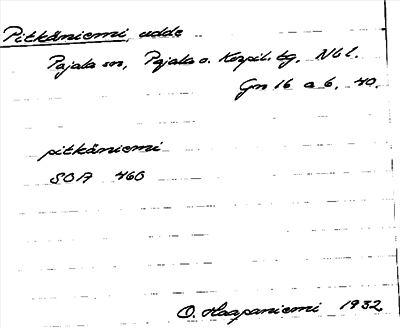 Pitkäniemi, udde
Pajala sn, Pajala o. Korpil. tg, Nbl.
Gn 16 a 6, 40.
pitkäniemi
SOA 460
O. Haapaniemi 1932